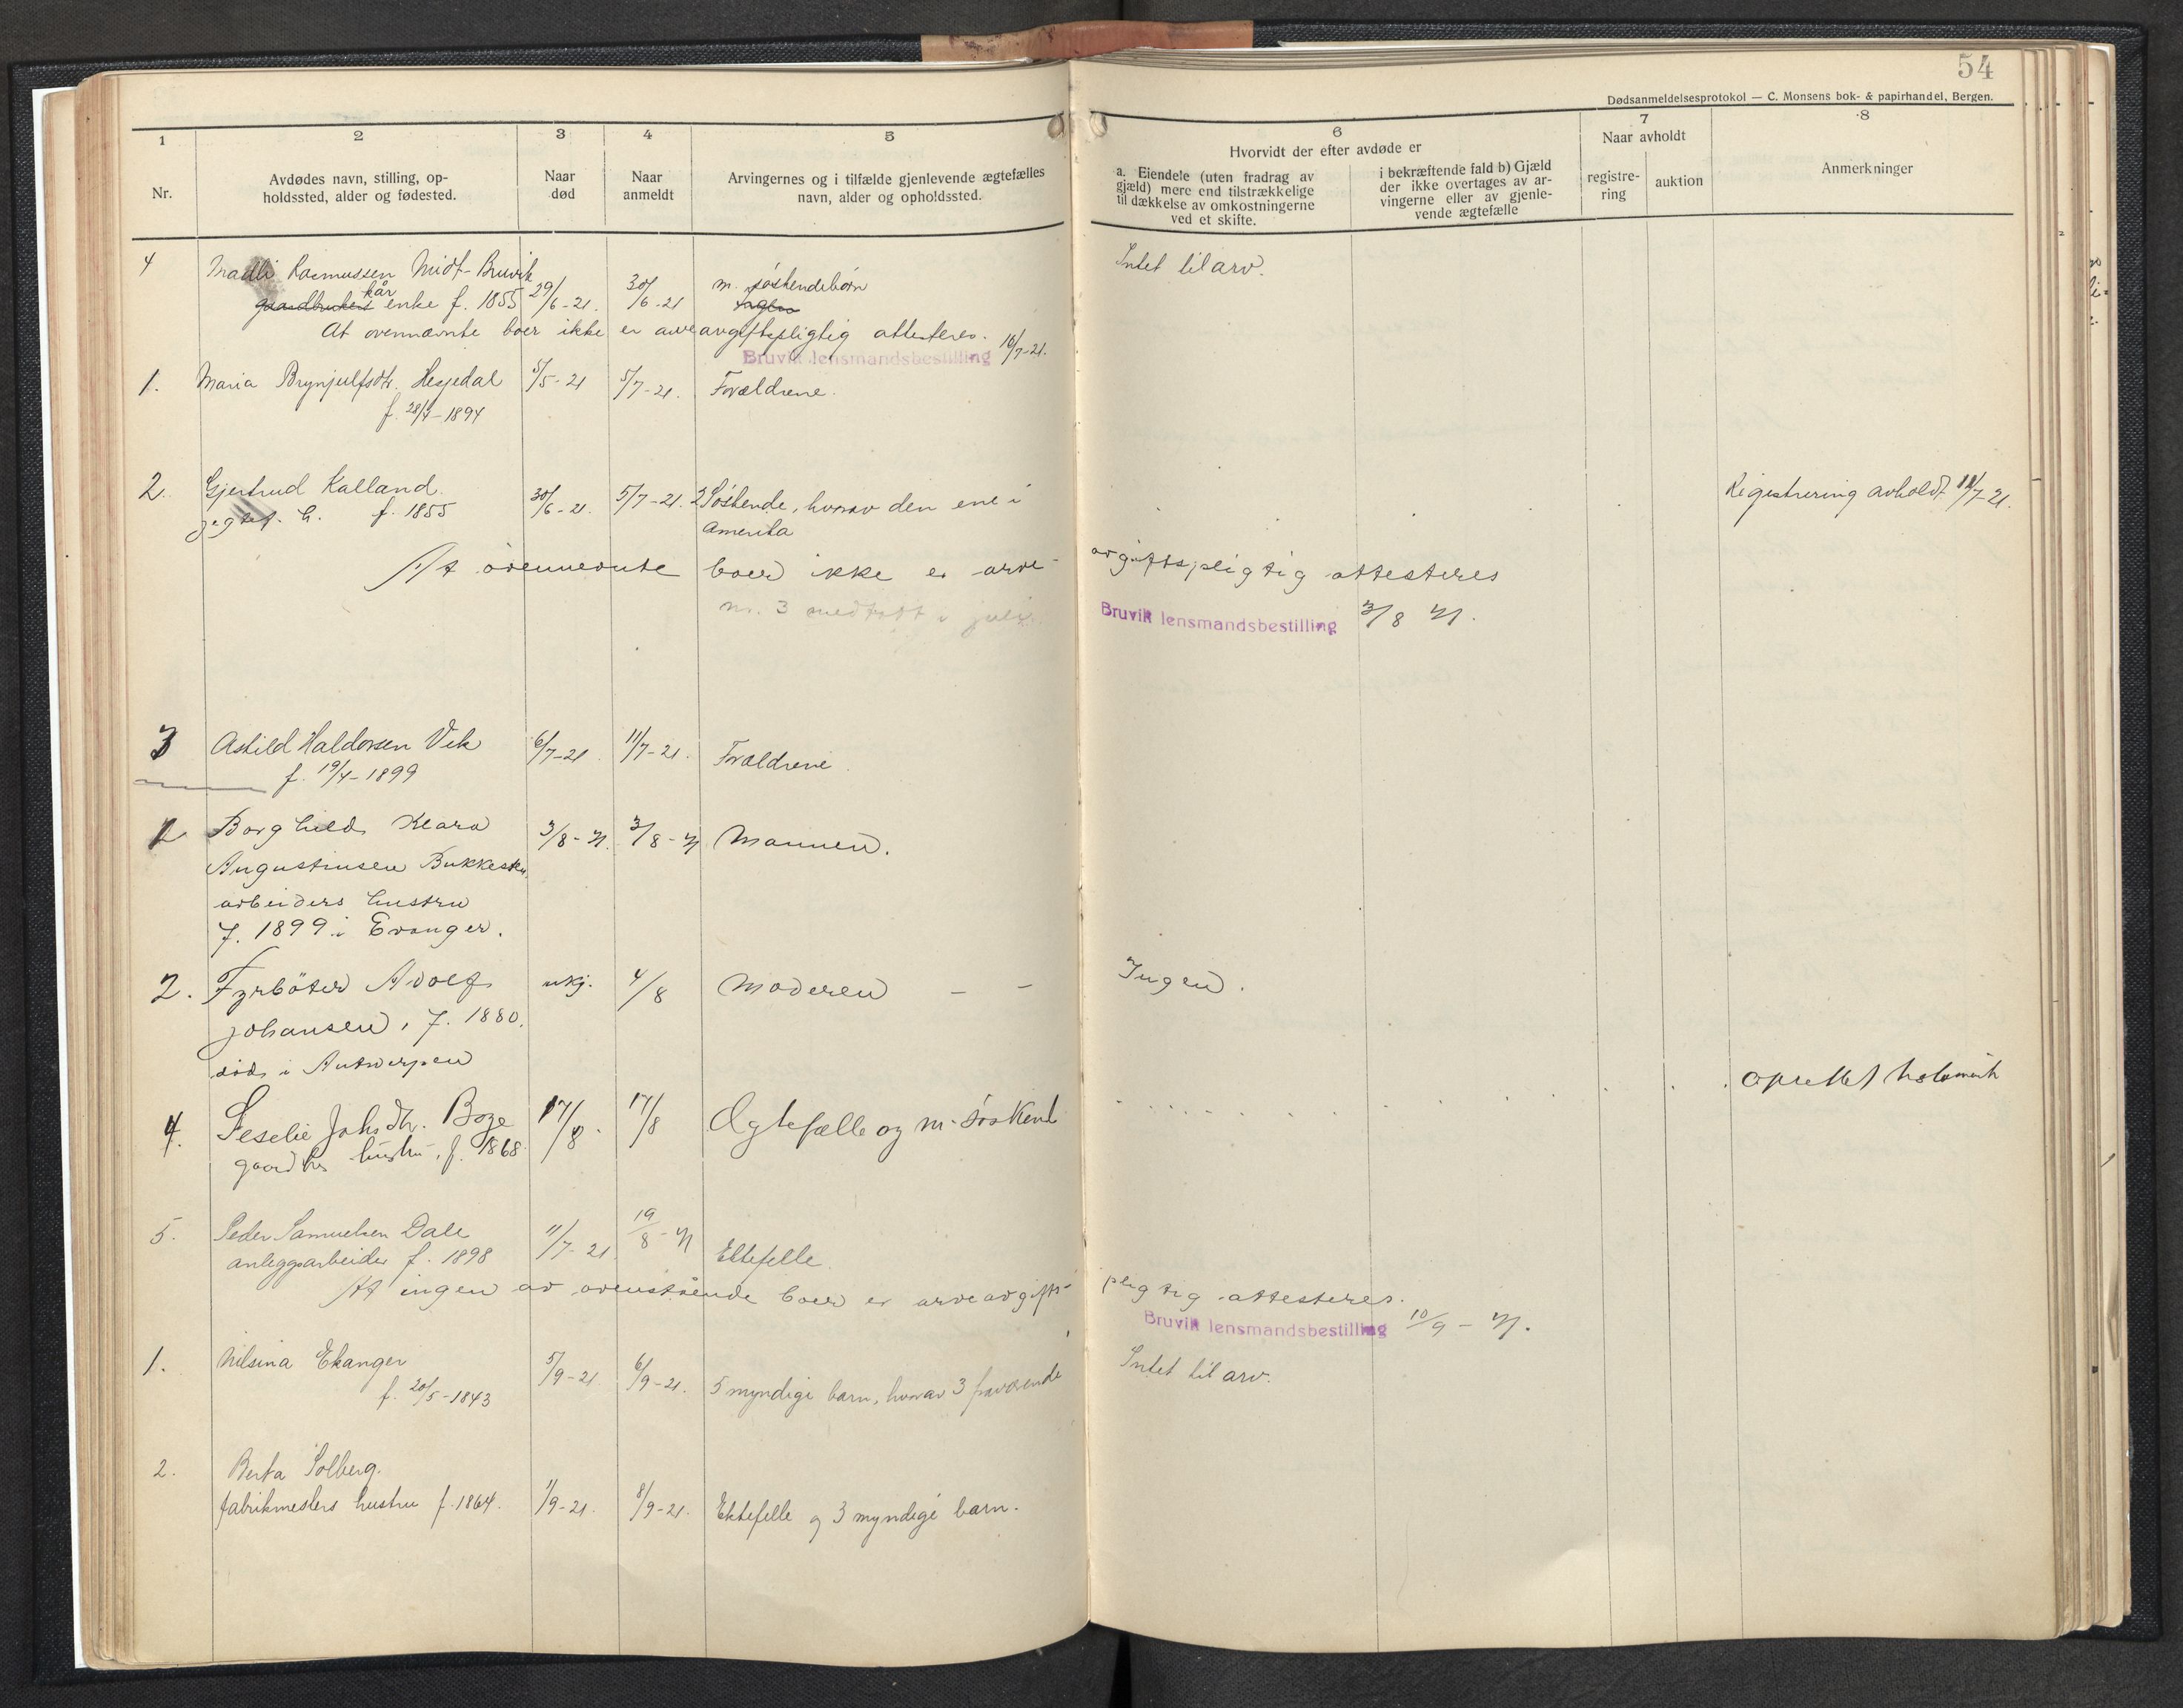 54
Dødsanmeldelsesprotokol — C. Monsens bok- & papirhandel, Bergen.
1 2 3 4 5 6 7 8
Nr.
Avdødes navn, stilling, op-
holdssted, alder og fødested.
Naar
død
Naar
anmeldt
Arvingernes og i tilfælde gjenlevende ægtefælles
navn, alder og opholdssted.
Hvorvidt der efter avdøde er
a. Eiendele (uten fradrag av
gjæld) mere end tilstrækkelige
til dækkelse av omkostningerne
ved et skifte.
i bekræftende fald b) Gjæld
der ikke overtages av ar-
vingerne eller av gjenle-
vende ægtefælle
Naar avholdt
registre-
ring
auktion
Anmerkninger
4 Rasmussen Midt-Bruvik 29/6-21. 30/6-21 m. søskendebørn Intet til arv.
gaardbrukers kår enke f. 1855
At ovennævnte boer ikke er arveavgiftspligtig attesteres. 16/7-21.
Bruvik lensmandsbestilling
1. Maria Brynjulfsdtr. Hesjedal 5/5-21 5/7-21. Forældrene.
f. 28/4-1894
2. Gjertrud Kalland 30/6-21. 5/7-21. 2 Søskende, hvorav den ene i Registrering avholdt 11/7-21.
f. 1855 Amerika
At ovennevnte boer ikke er arve-
avgiftspligtig attesteres
nr. 3 medtatt i juli
Bruvik lensmandsbestilling 3/8 21.
3 Askild Haldorsen Vik 6/7-21. 11/7-21. Forældrene.
f. 19/4-1899
1 Borghild Klara 3/8-21. 3/8-21 Mannen.
Augustinsen Bukkestu.
arbeiders hustru
f. 1899 i Evanger.
2. Fyrbøter Adolf ukj. 4/8 Moderen — — Ingen.
Johansen, f. 1880.
død i Antwerpen
4. Seselie Johsdtr. Boge 17/8. 17/8 Ægtefælle og m. søskend
gaardbrs hustru, f. 1868.
5. Peder Samuelsen Dale 11/7-21. 19/8-21 Ektefelle.
anleggsarbeider f. 1898
At ingen av ovenstående boer er arveavgifts-
pligtig attesteres.
Bruvik lensmandsbestilling 10/9-21.
1. Nilsina Ekanger 5/9-21. 6/9-21. 5 myndige barn, hvorav 3 fraværende Intet til arv.
f. 20/5-1843
2. Berta Solberg.
fabrikmesters hustru f. 1864. 1/9-21. 8/9-21. Ektefelle og 3 myndige barn.